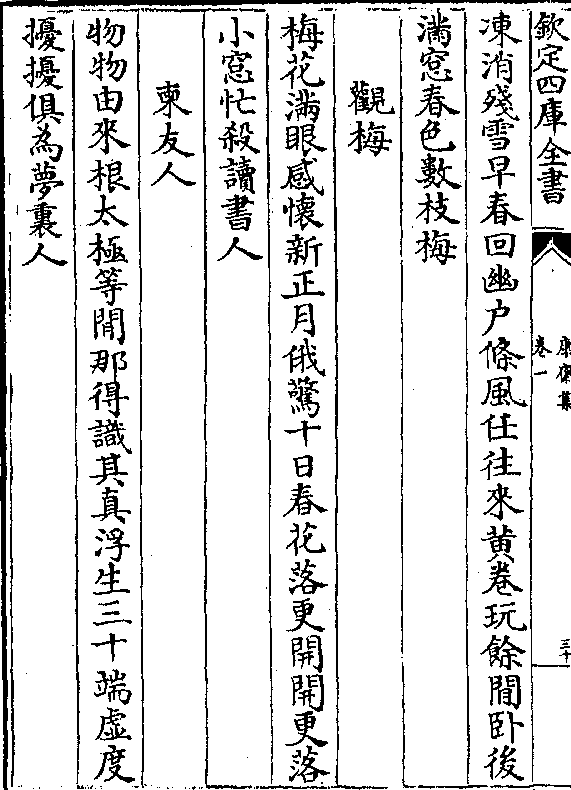 欽定四庫全書
康齋集
卷一
三十
凍消殘雪早春回幽户條風任往來黄卷玩餘閒卧後
滿窓春色數枝梅
觀梅
梅花滿眼感懷新正月俄驚十日春花落更開開更落
小窓忙殺讀書人
柬友人
物物由來根太極等閒那得識其真浮生三十端虛度
擾擾俱為夢裏人